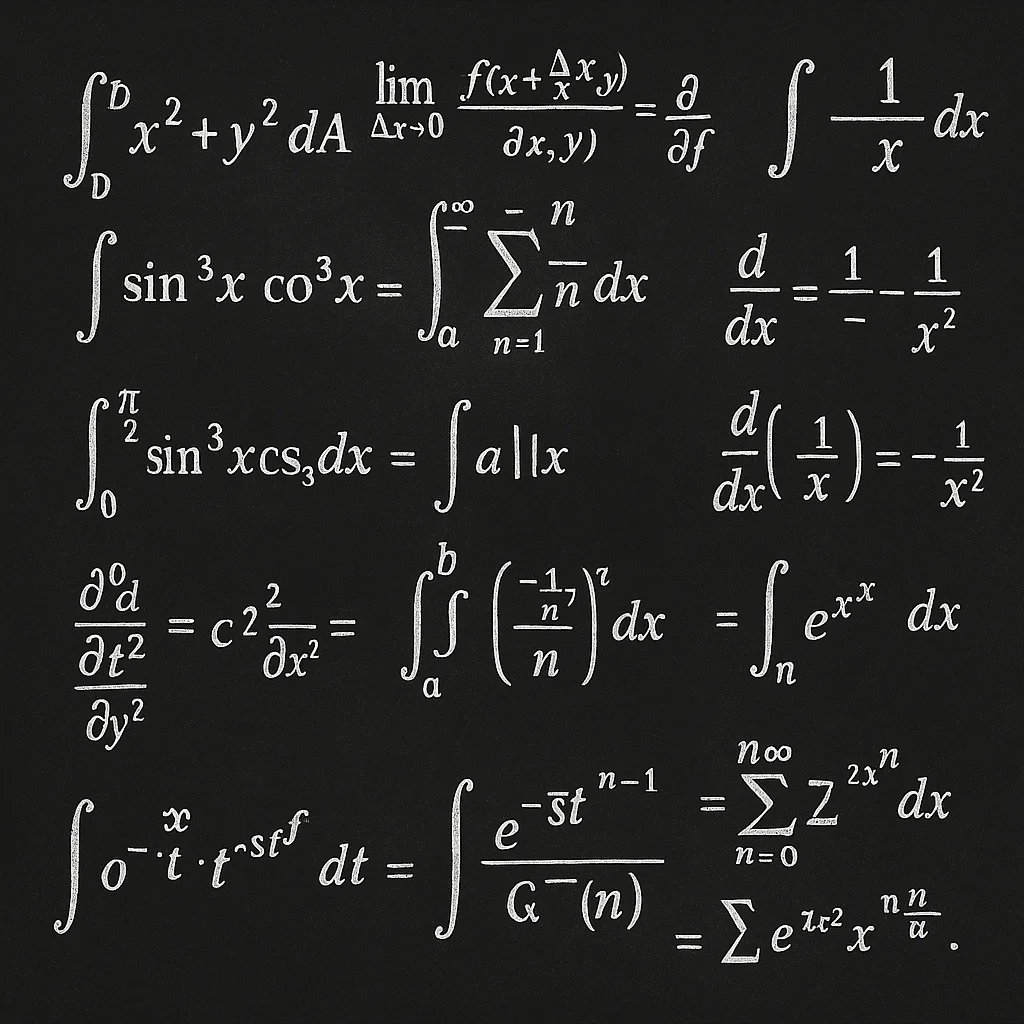 ∫_D^D x² + y² dA lim_{Δx→0} f(x + Δ/x x y) / ∂x, y) = ∂/∂f ∫ 1/x dx
∫ sin³x co³x = ∫_a^∞ ∑_{n=1}^{n} n/n dx d/dx = 1/− − 1/x²
∫_0^{π 2} sin³xcs₃dx = ∫ a||x d/dx (1/x) = −1/x²
∂⁰d/∂t²/∂y² = c2 2/∂x² = ∫_a^b ∫ (−1/n, / n)^τ dx = ∫_n e^{x^x} dx
∫ o^{−·} t^x · t^{-st^f} dt = ∫ e^{−s̅t^{n−1}} / G¯(n) = ∑_{n=0}^{n∞} Z^{2x^n} dx
= ∑ e^{2x2} x^{n n/a}.